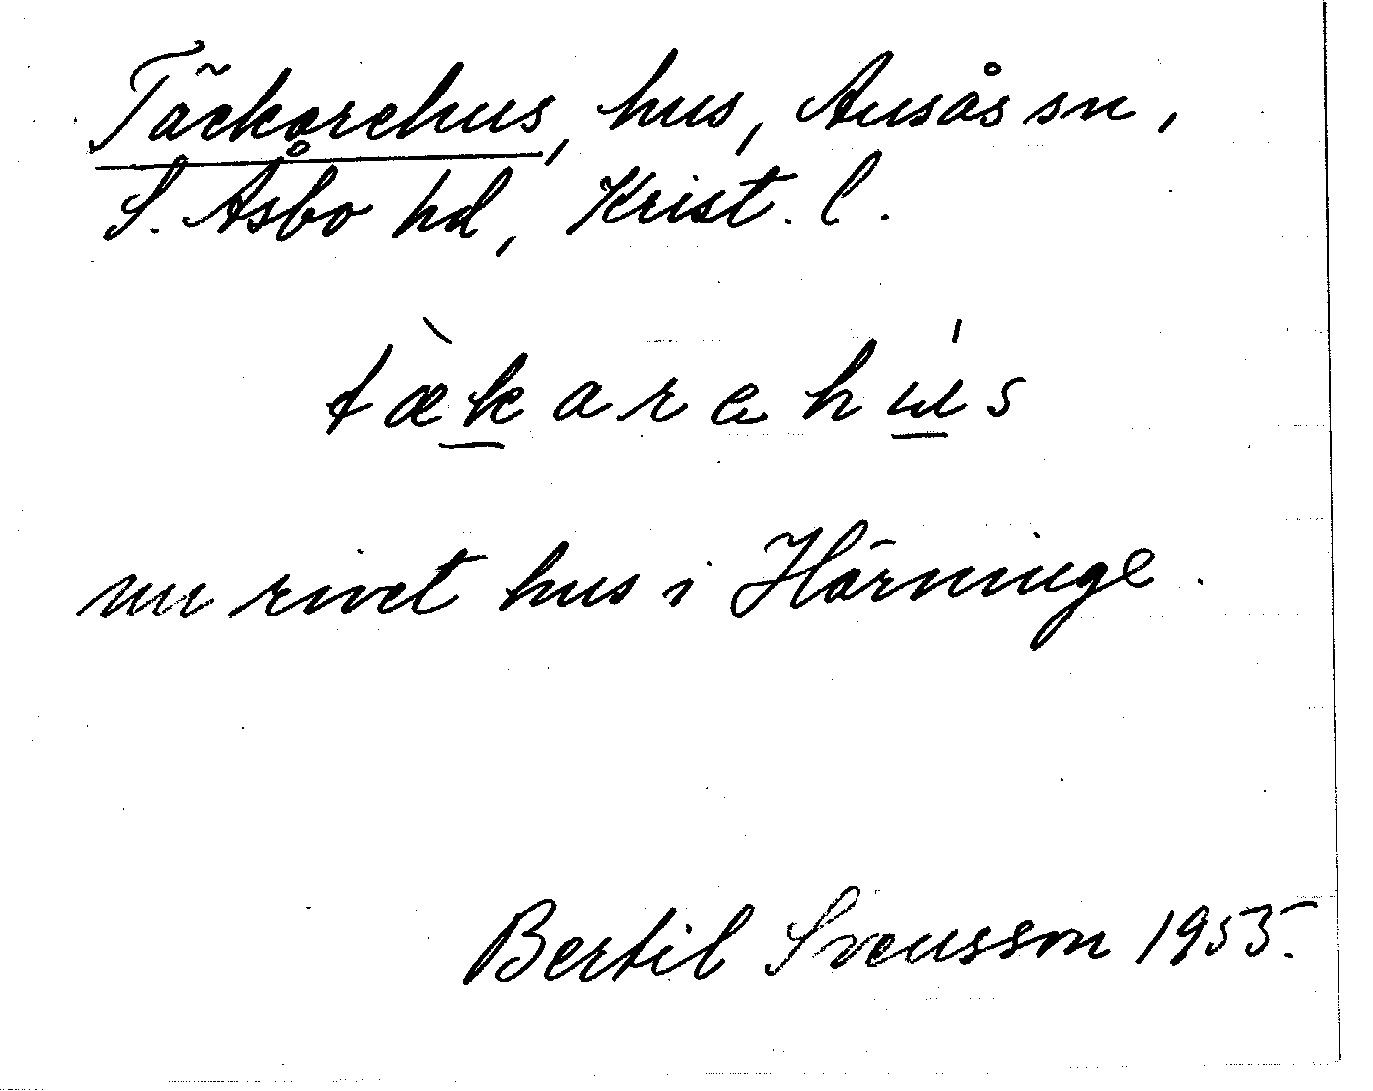 Täckarehus, hus, Ausås sn,
S. Åsbo hd, Krist. l.
tæ̀karehús
nu rivet hus i Härninge.
Bertil Svensson 1955.